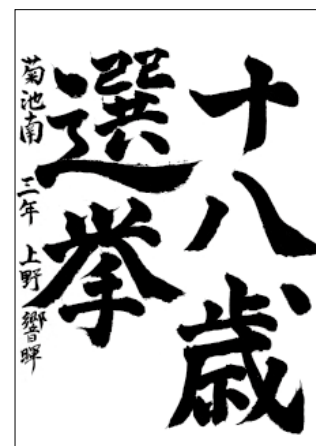 十八歳
選挙
菊池南 三年 上野 響暉